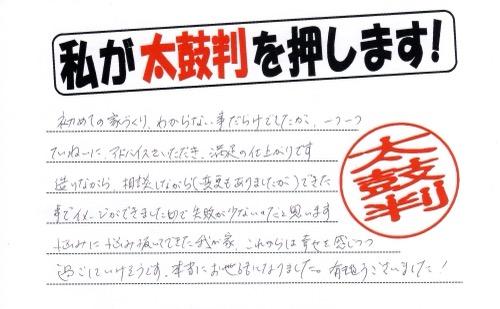 私が太鼓判を押します!
初めての家づくり、わからない事だらけでしたが、一つ一つ
ていねーに、アドバイスをいただき、満足の仕上がりです
造りながら、相談しながら(変更もありましたが)できた
事でイメージができました切で失敗が少ないかったと思います
悩みに悩み抜いてできた我が家 これからは幸せを感じつつ
過ごしていけそうです、本当にお世話になりました。有難うございました!
太鼓判